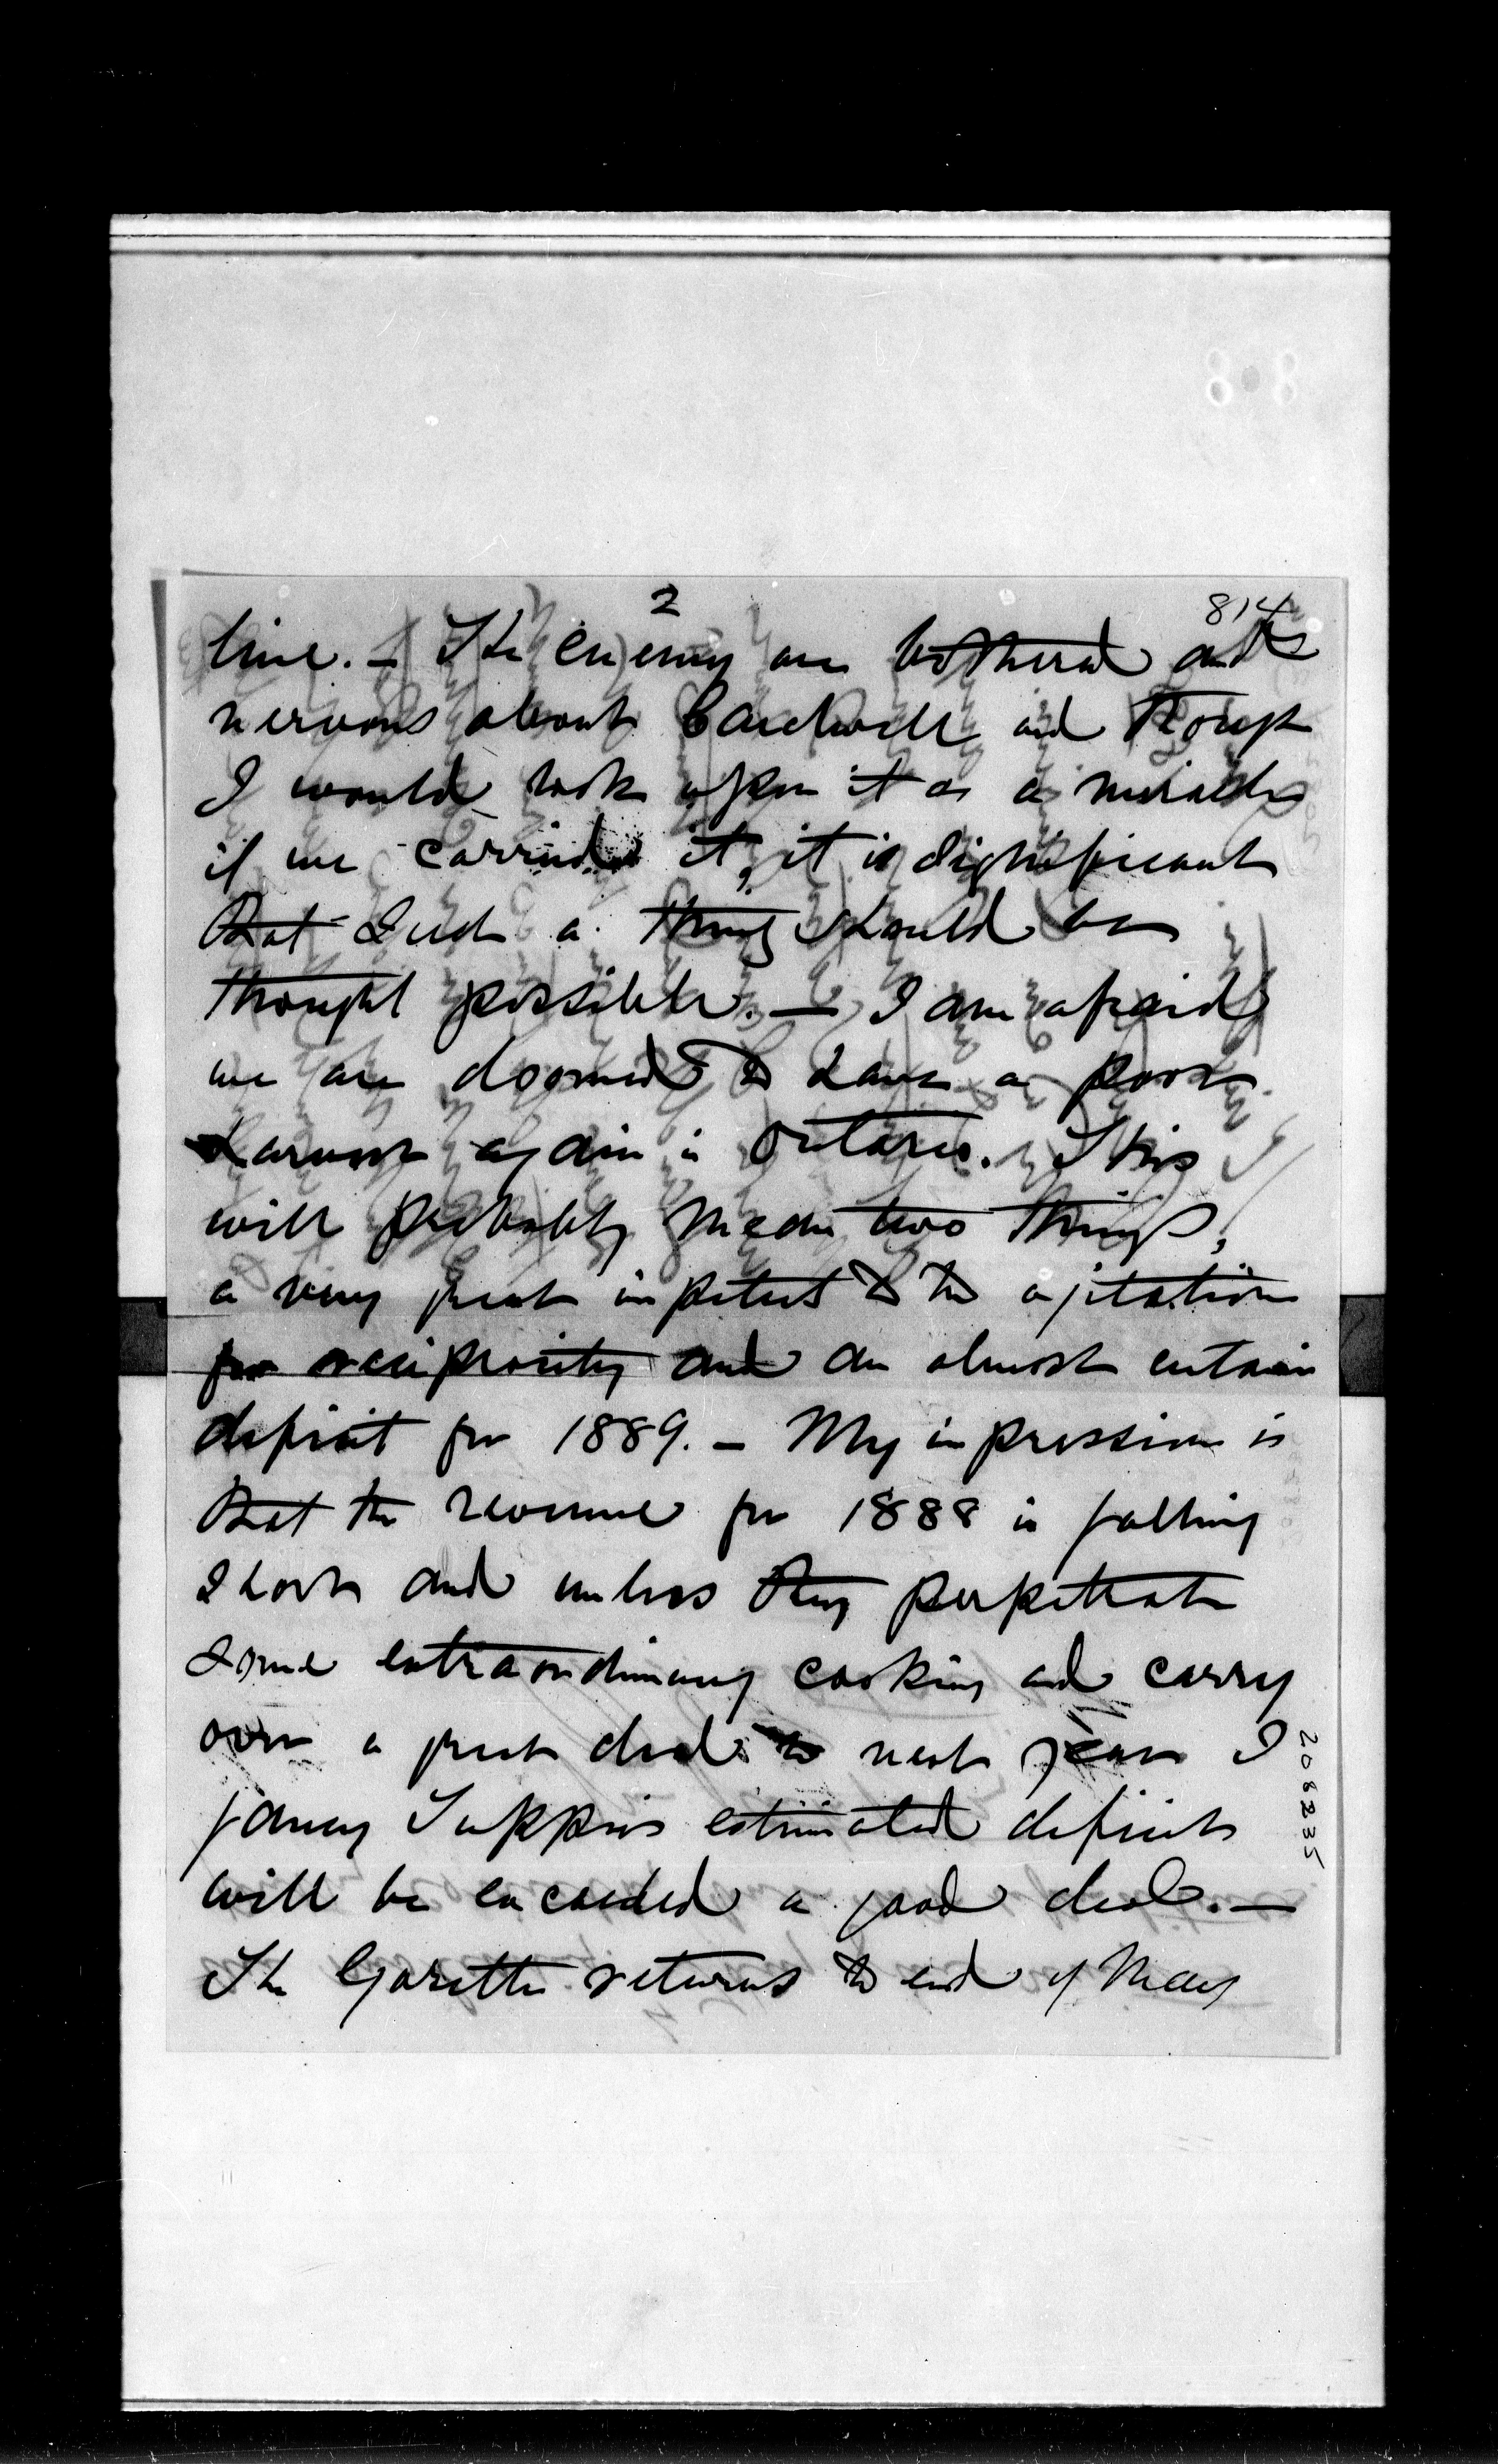 2
814
line. — The enemy are bothered and
nervous about Cardwell and though
I would look upon it as a miracle
if we carried it, it is significant
that such a thing should be
thought possible. — I am afraid
we are doomed to have a poor
harvest again in Ontario. This
will probably mean two things,
a very great impetus to the agitation
for reciprocity and an almost certain
deficit for 1889. — My impression is
that the revenue for 1888 is falling
short and unless they perpetrate
some extraordinary cooking and carry
over a great deal to next year I
fancy Tuppers estimated deficit
will be exceeded a good deal. —
The Gazette returns to end of May
208235